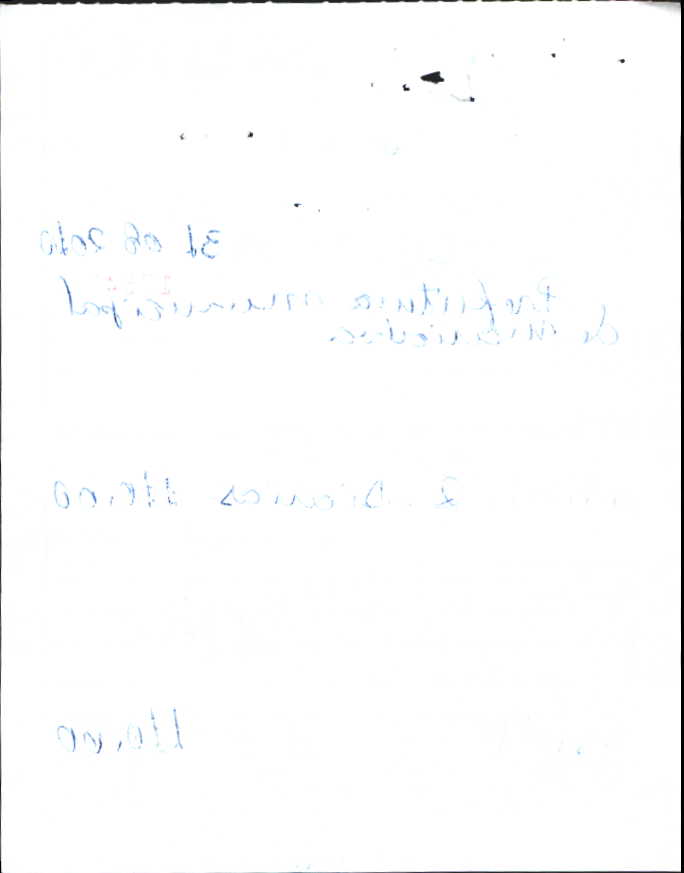 31 06 2010
Prefeitura municipal
de
2 Diarias 110,00
110,00